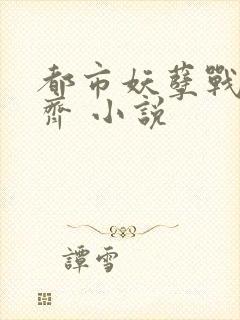 都市妖孽戰
齊 小說
譚雪